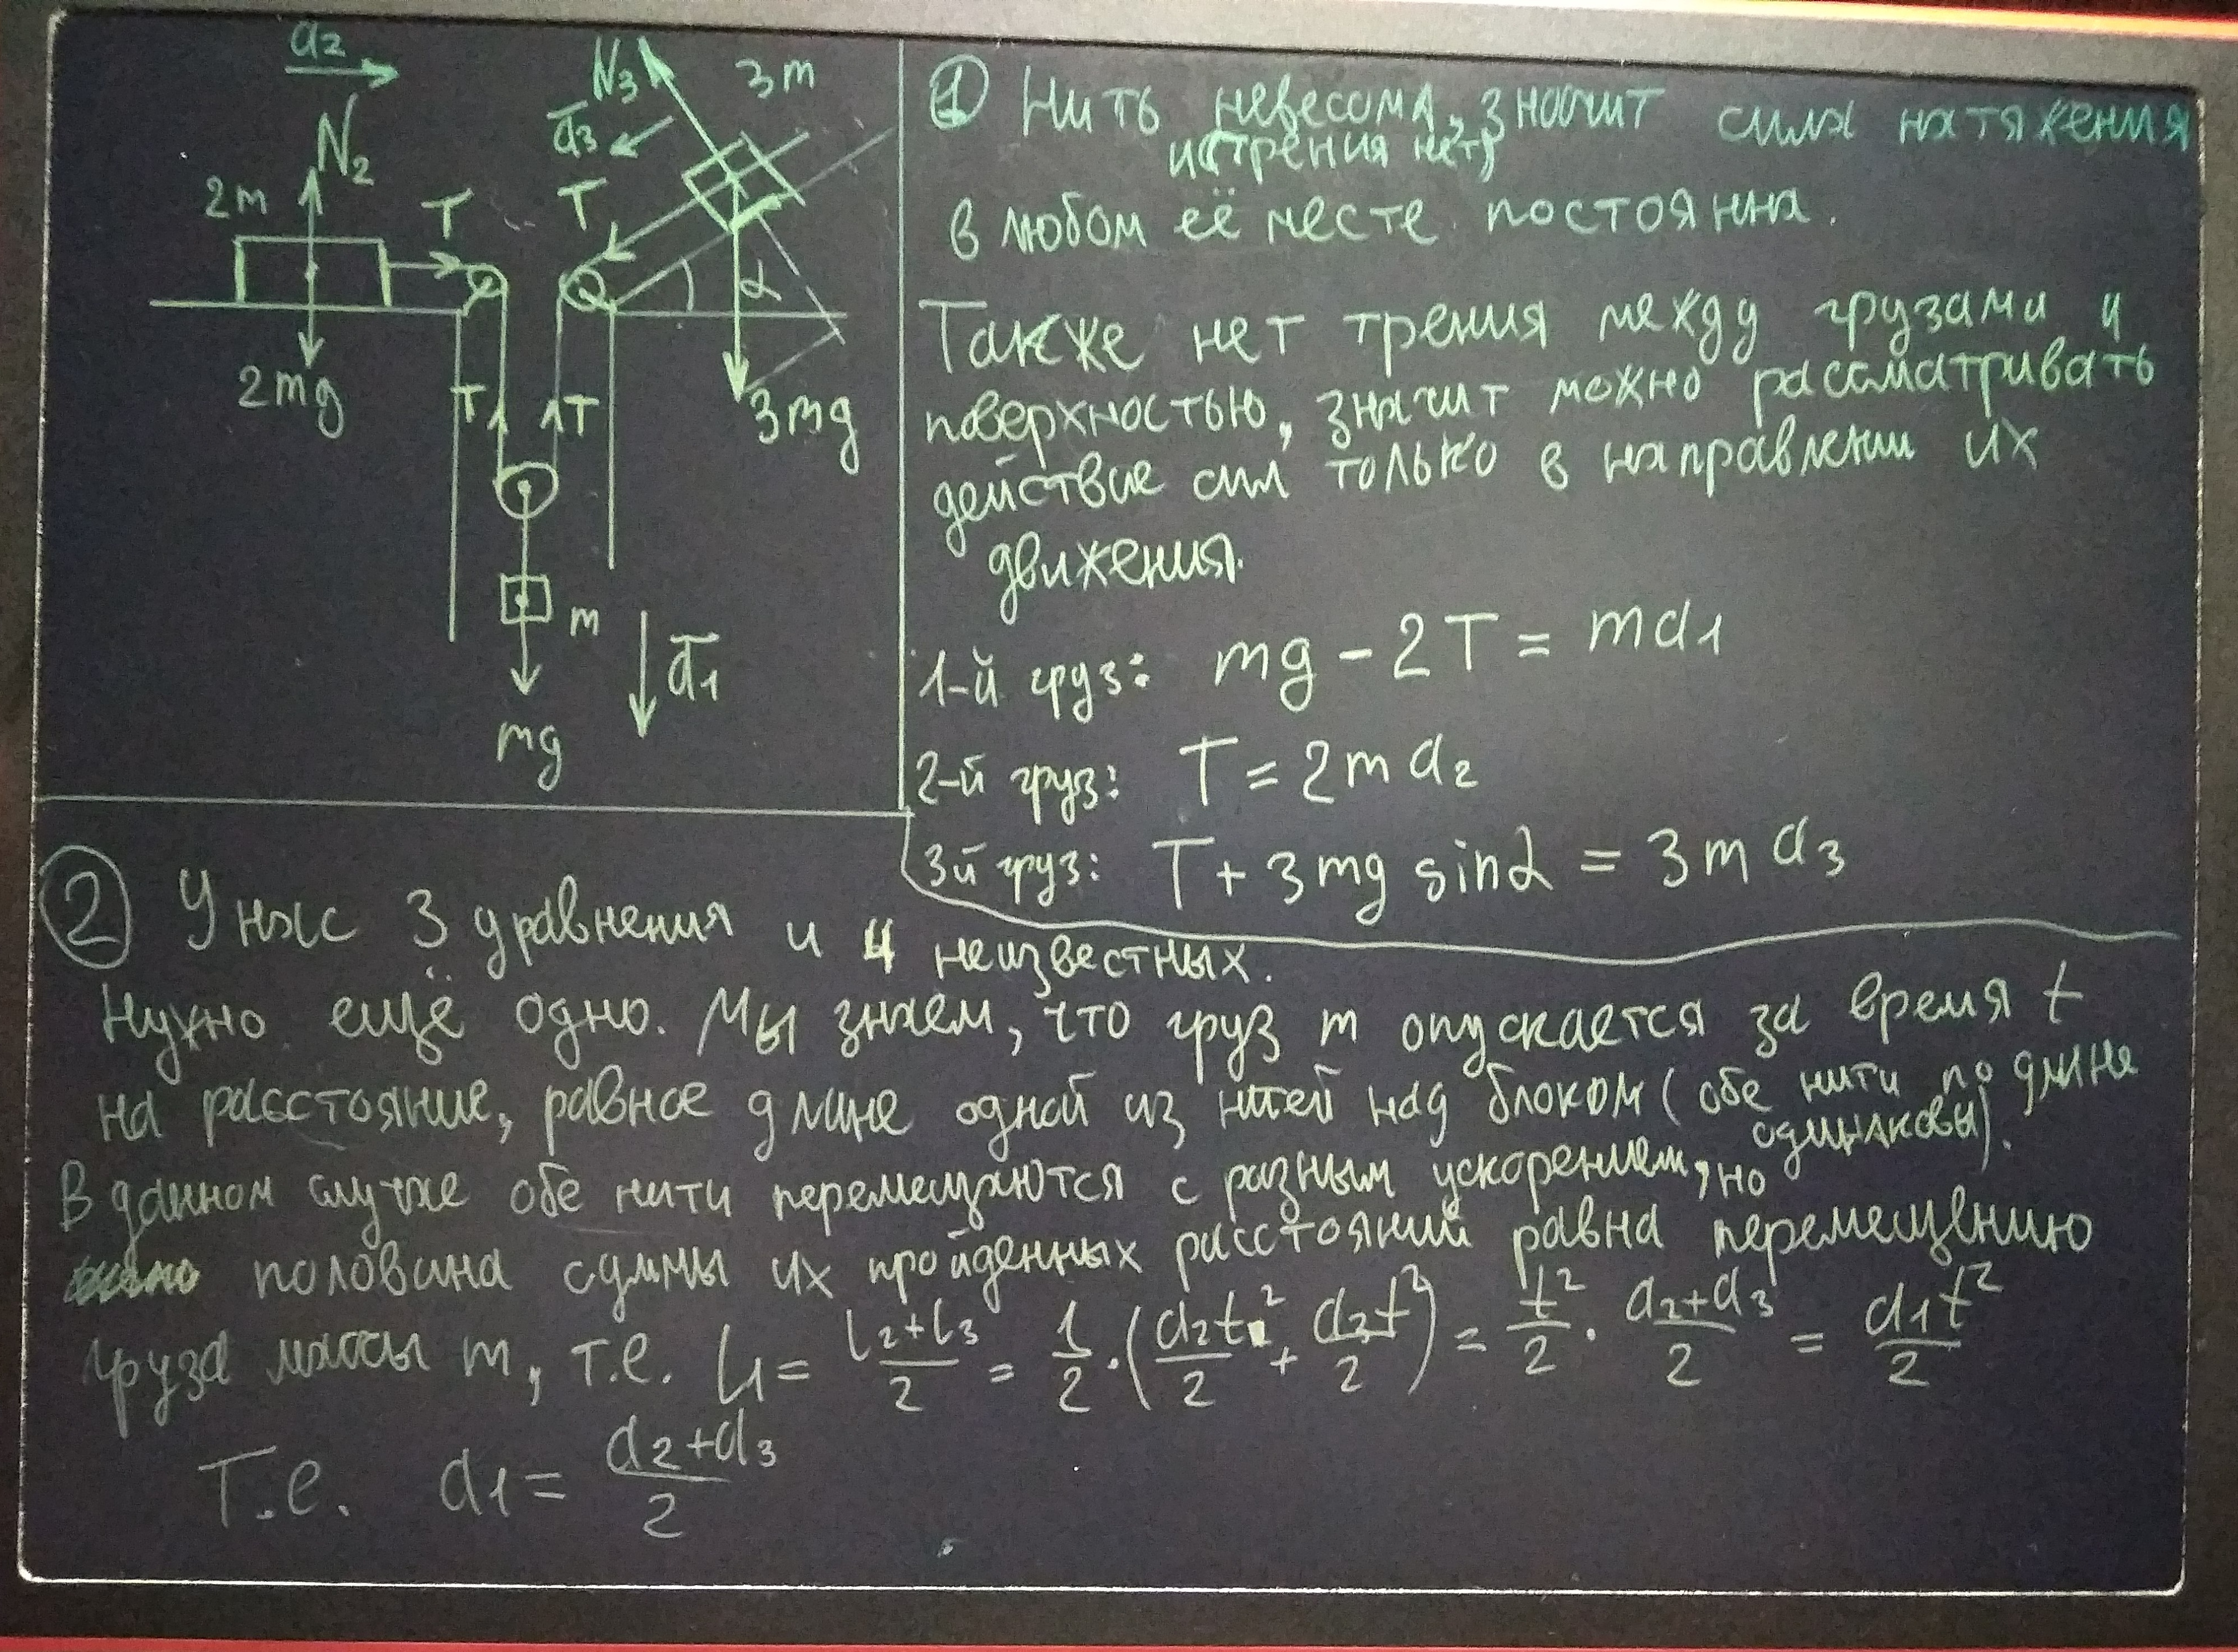 a₂
N₂
2m
T
2mg
N₃
3m
a₃
T
α
3mg
T
T
m
a₁
mg
① Нить невесома, значит сила натяжения
и (трения нет)
в любом её месте постоянна.
Также нет трения между грузами и
поверхностью, значит можно рассматривать
действие сил только в направлении их
движения.
1-й груз: mg - 2T = ma₁
2-й груз: T = 2ma₂
3й груз: T + 3mg sinα = 3ma₃
② У нас 3 уравнения и 4 неизвестных.
Нужно ещё одно. Мы знаем, что груз m опускается за время t
на расстояние, равное длине одной из нитей над блоком (обе нити по длине
одинаковы).
В данном случае обе нити перемещаются с разным ускорением, но
половина суммы их пройденных расстояний равна перемещению
груза массы m, т.е. L₁ = (L₂+L₃)/2 = 1/2·(a₂t²/2 + a₃t²/2) = t²/2 · (a₂+a₃)/2 = a₁t²/2
Т.е. a₁ = (a₂+a₃)/2